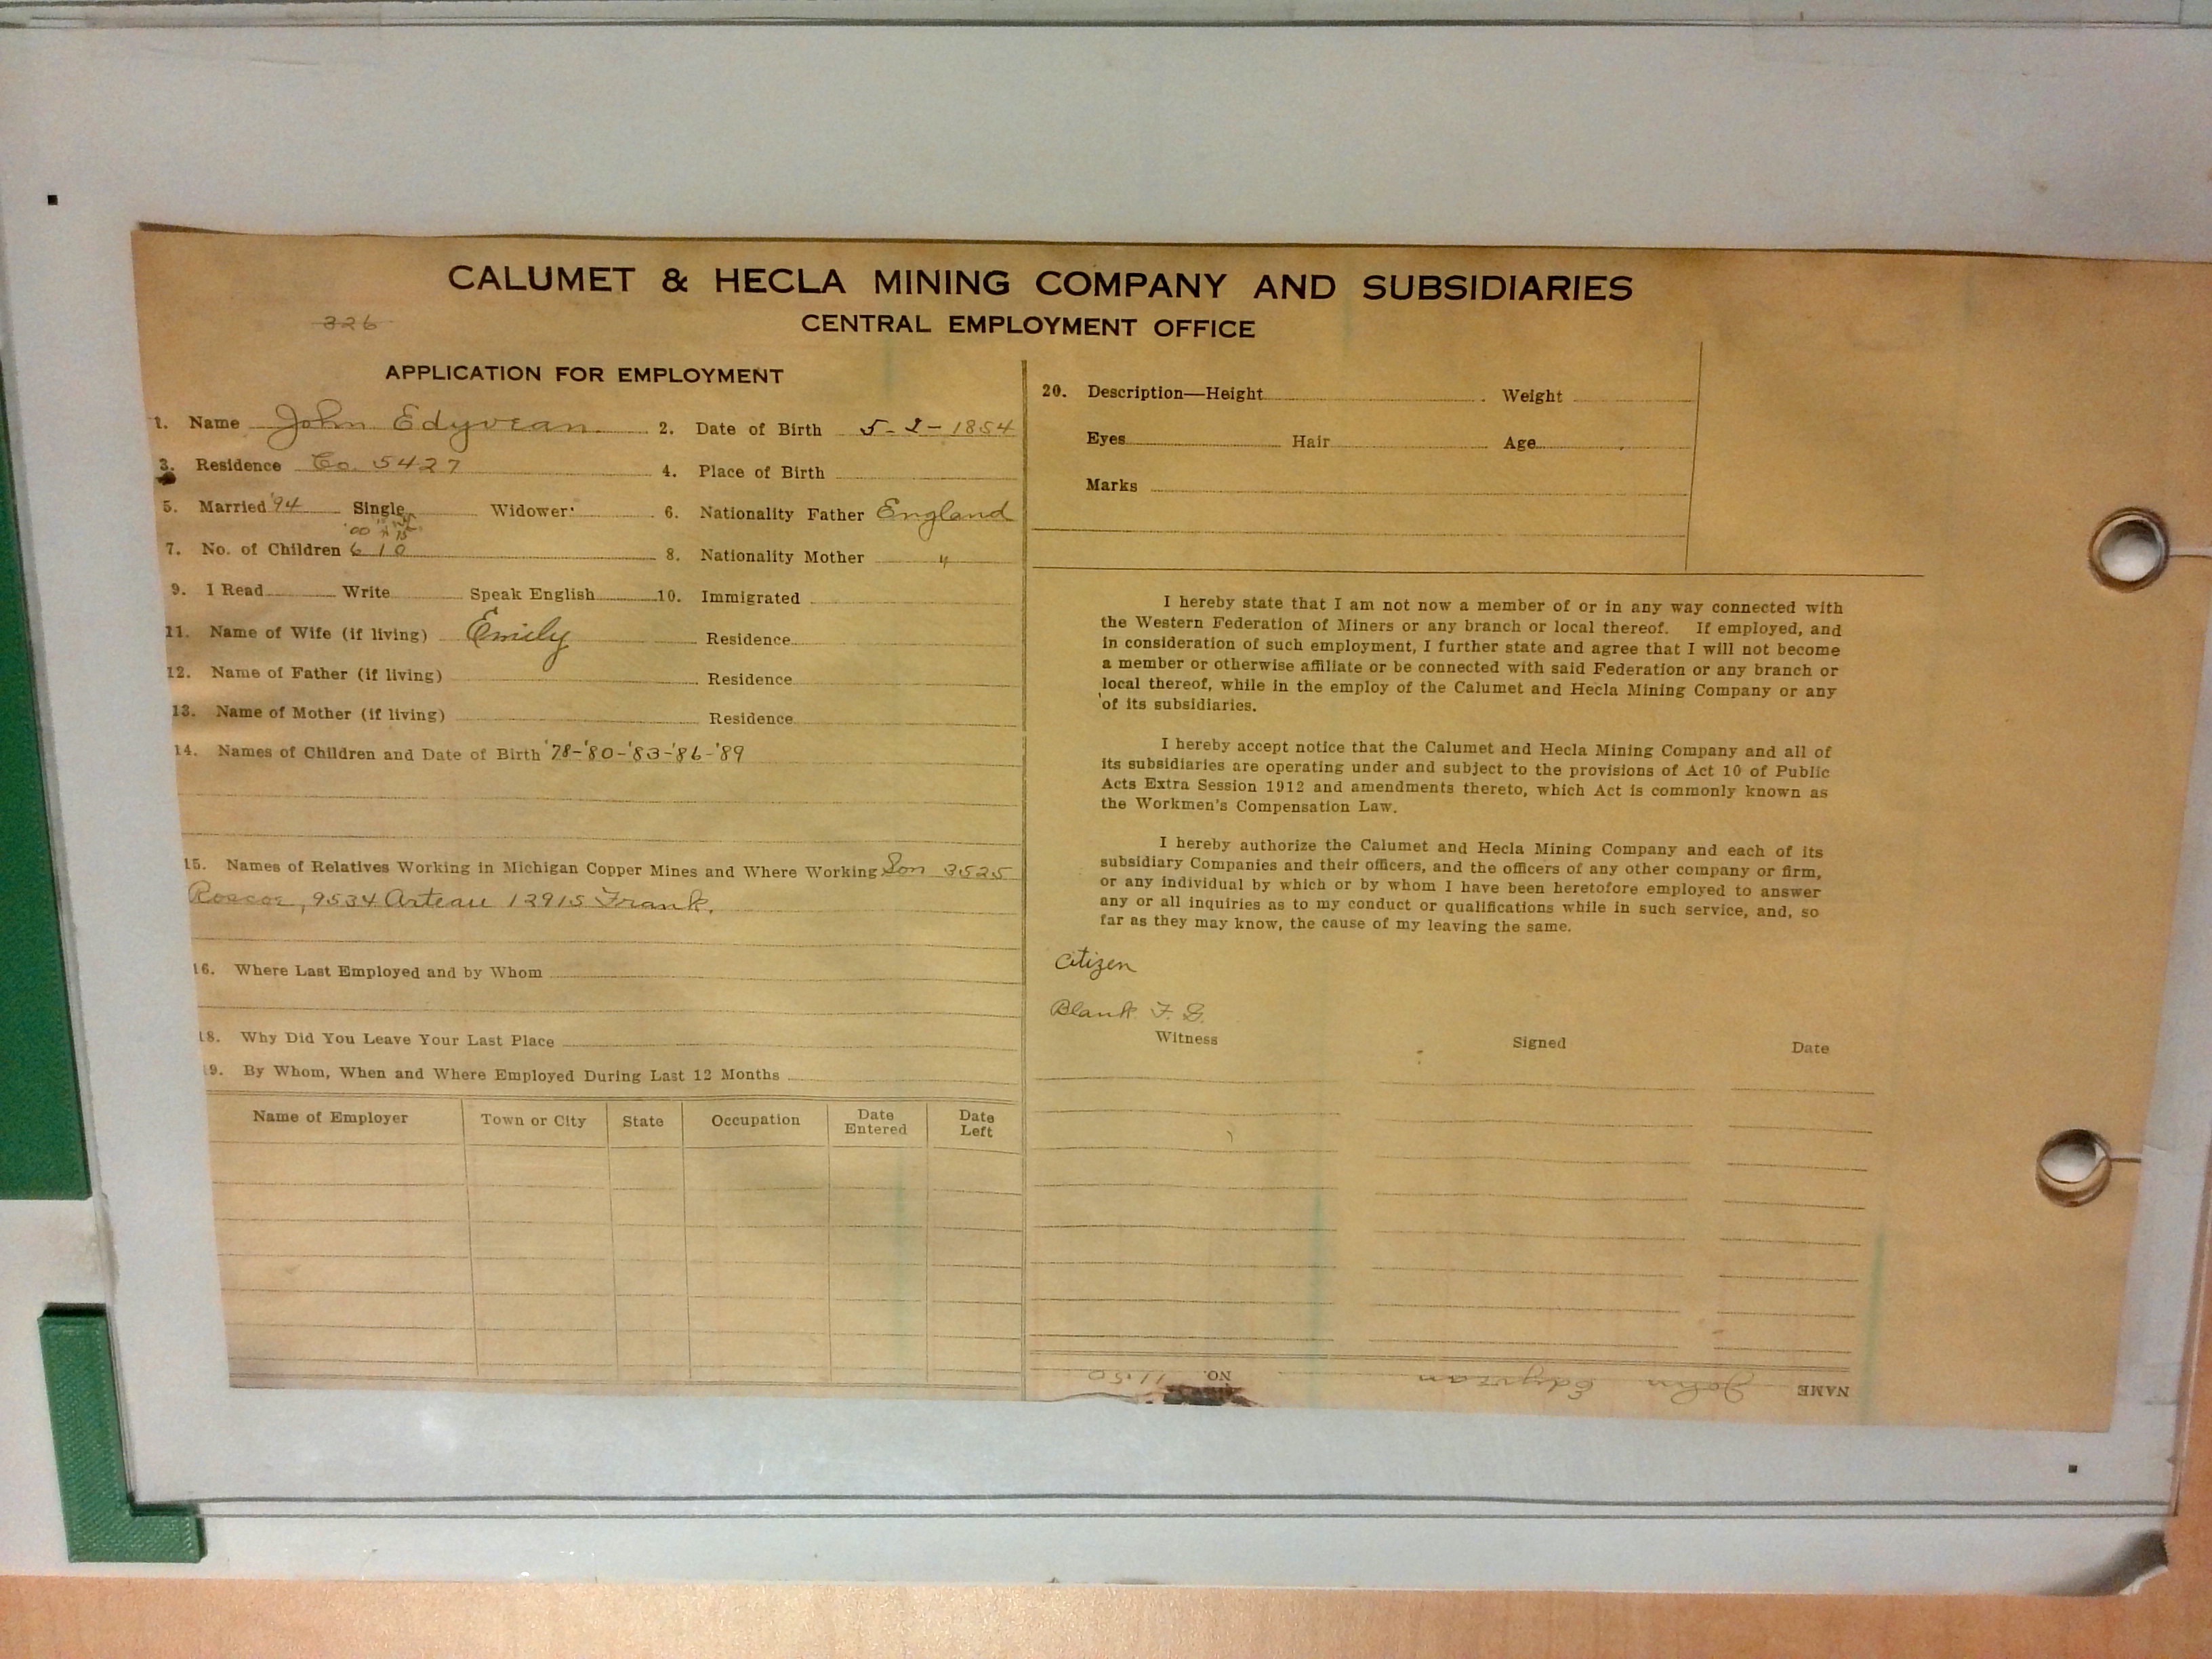 CALUMET & HECLA MINING COMPANY AND SUBSIDIARIES
CENTRAL EMPLOYMENT OFFICE
326
APPLICATION FOR EMPLOYMENT
1. Name John Edyvean 2. Date of Birth 5-2-1854
3. Residence Co. 5427 4. Place of Birth
5. Married '94 Single Widower 6. Nationality Father England
'00
7. No. of Children 6 1 0 8. Nationality Mother "
9. I Read Write Speak English 10. Immigrated
11. Name of Wife (if living) Emily Residence
12. Name of Father (if living) Residence
13. Name of Mother (if living) Residence
14. Names of Children and Date of Birth '78-'80-'83-'86-'89
15. Names of Relatives Working in Michigan Copper Mines and Where Working Son 3525
Roscoe, 9534 Arteau 12915 Frank.
16. Where Last Employed and by Whom
18. Why Did You Leave Your Last Place
19. By Whom, When and Where Employed During Last 12 Months
Name of Employer Town or City State Occupation Date Entered Date Left
20. Description—Height Weight
Eyes Hair Age
Marks
I hereby state that I am not now a member of or in any way connected with
the Western Federation of Miners or any branch or local thereof. If employed, and
in consideration of such employment, I further state and agree that I will not become
a member or otherwise affiliate or be connected with said Federation or any branch or
local thereof, while in the employ of the Calumet and Hecla Mining Company or any
of its subsidiaries.
I hereby accept notice that the Calumet and Hecla Mining Company and all of
its subsidiaries are operating under and subject to the provisions of Act 10 of Public
Acts Extra Session 1912 and amendments thereto, which Act is commonly known as
the Workmen's Compensation Law.
I hereby authorize the Calumet and Hecla Mining Company and each of its
subsidiary Companies and their officers, and the officers of any other company or firm,
or any individual by which or by whom I have been heretofore employed to answer
any or all inquiries as to my conduct or qualifications while in such service, and, so
far as they may know, the cause of my leaving the same.
Citizen
Blank F. G.
Witness Signed Date
NAME John Edyvean NO. 1150